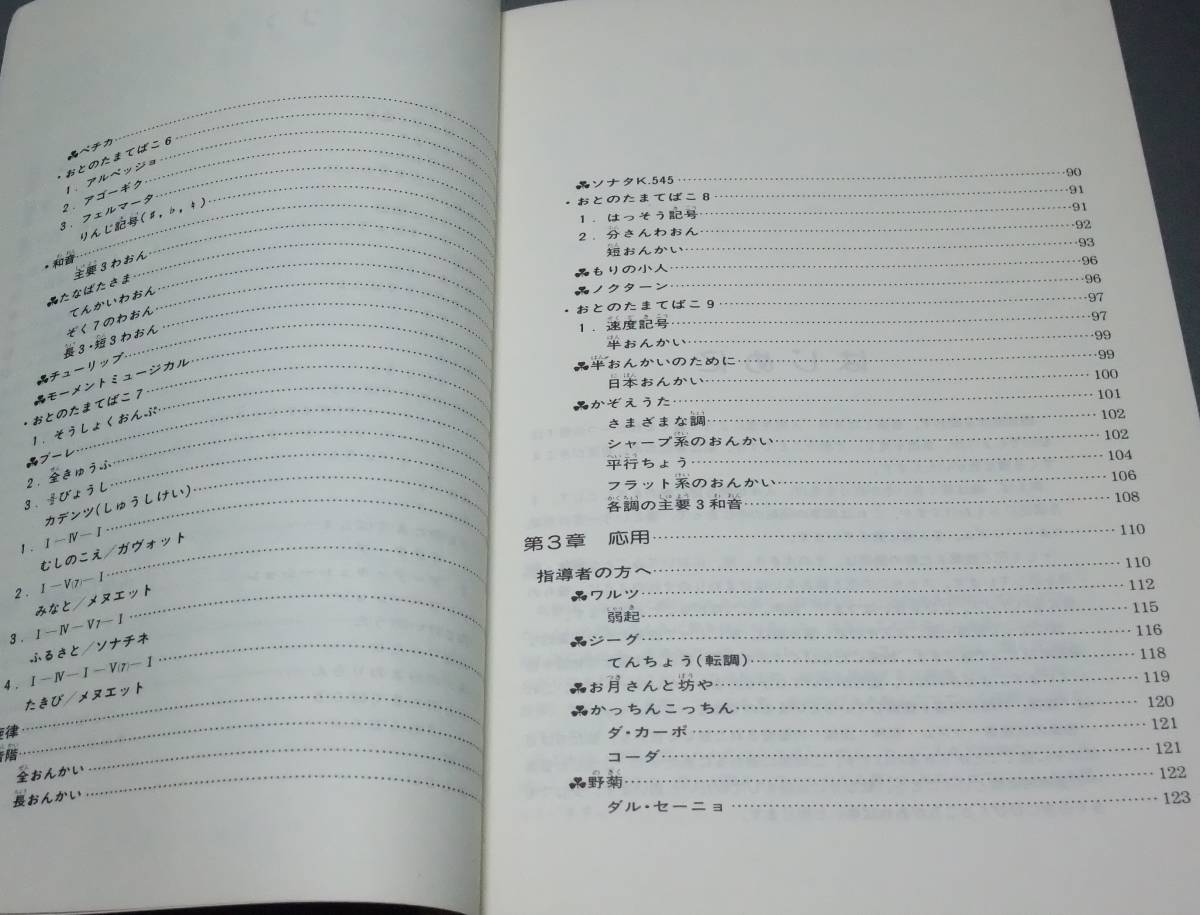 ☘ペチカ
・おとのたまてばこ6
1．アルペッジョ
2．アゴーギク
3．フェルマータ
りんじ記号(♯,♭,♮)
・和音
主要3わおん
☘たなばたさま
てんかいわおん
ぞく7のわおん
長3・短3わおん
☘チューリップ
☘モーメントミュージカル
・おとのたまてばこ7
1．そうしょくおんぷ
☘ブーレ
2．全きゅうふ
びょうし
カデンツ(しゅうしけい)
1．Ⅰ－Ⅳ－Ⅰ
むしのこえ/ガヴォット
2．Ⅰ－Ⅴ(7)－Ⅰ
みなと/メヌエット
3．Ⅰ－Ⅳ－Ⅴ7－Ⅰ
ふるさと/ソナチネ
4．Ⅰ－Ⅳ－Ⅰ－Ⅴ(7)－Ⅰ
たきび/メヌエット
律
階
全おんかい
長おんかい
☘ソナタK.545 90
・おとのたまてばこ8 91
1．はっそう記号 91
2．分さんわおん 92
短おんかい 93
☘もりの小人 96
☘ノクターン 96
・おとのたまてばこ9 97
1．速度記号 97
半おんかい 99
☘半おんかいのために 99
日本おんかい 100
☘かぞえうた 101
さまざまな調 102
シャープ系のおんかい 102
平行ちょう 104
フラット系のおんかい 106
各調の主要3和音 108
第3章 応用 110
指導者の方へ 110
☘ワルツ 112
弱起 115
☘ジーグ 116
てんちょう(転調) 118
☘お月さんと坊や 119
☘かっちんこっちん 120
ダ・カーポ 121
コーダ 121
☘野菊 122
ダル・セーニョ 123